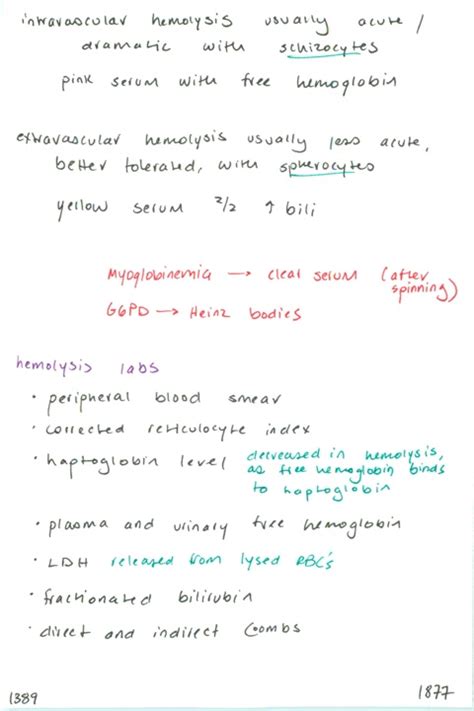 intravascular hemolysis usually acute /
dramatic with schizocytes
pink serum with free hemoglobin
extravascular hemolysis usually less acute,
better tolerated, with spherocytes
yellow serum 2/2 ↑ bili
Myoglobinemia → clear serum (after spinning)
G6PD → Heinz bodies
hemolysis labs
• peripheral blood smear
• corrected reticulocyte index
• haptoglobin level decreased in hemolysis,
as free hemoglobin binds
to haptoglobin
• plasma and urinary free hemoglobin
• LDH released from lysed RBC's
• fractionated bilirubin
• direct and indirect Coombs
1389 1877